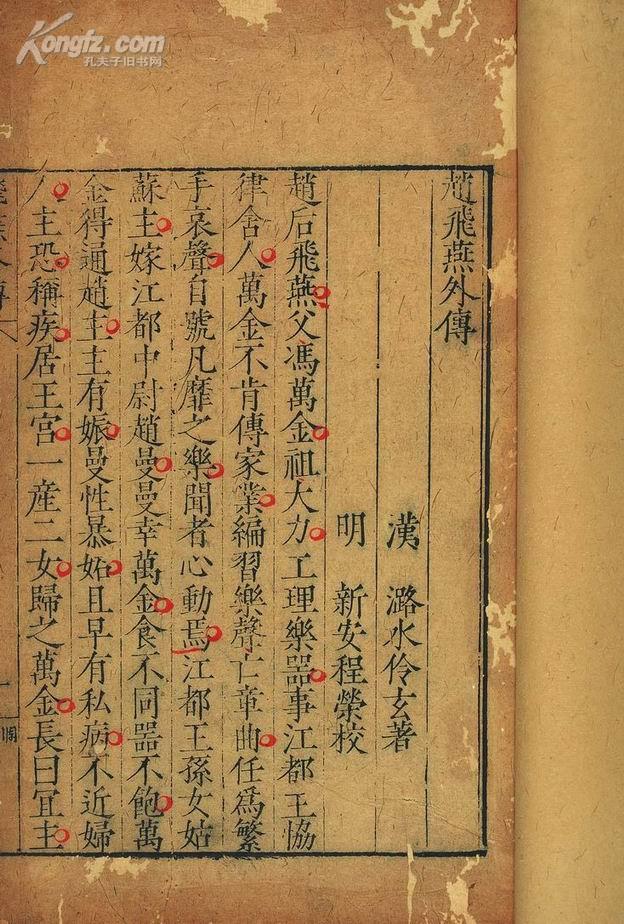 Kongfz.com
孔夫子旧书网
趙飛燕外傳
漢 潞水伶玄著
明 新安程榮校
趙后飛燕父馮萬金祖大力工理樂器事江都王協
律舍人萬金不肯傳家業編習樂聲亡章曲任爲繁
手哀聲自號凡靡之樂聞者心動焉江都王孫女姑
蘇主嫁江都中尉趙曼曼幸萬金食不同器不飽萬
金得通趙主主有娠曼性暴妬且早有私病不近婦
人主恐稱疾居王宮一產二女歸之萬金長曰冝主